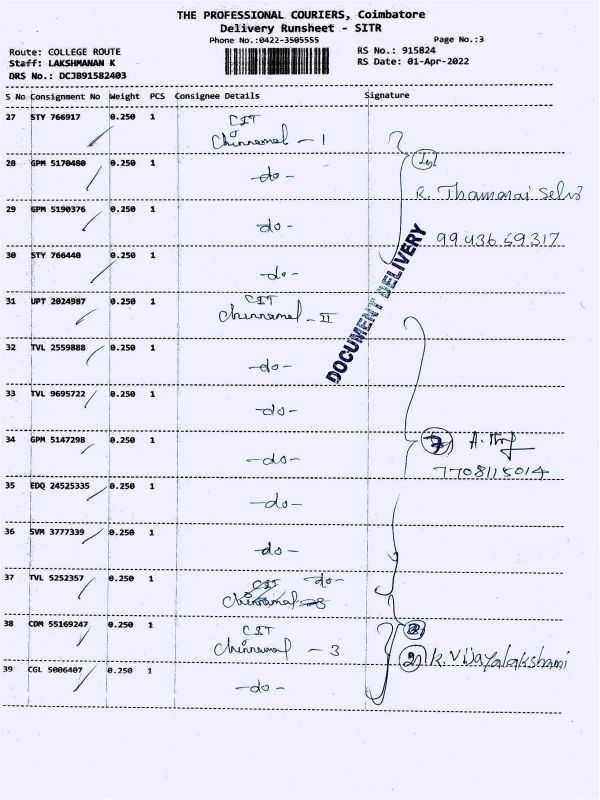 THE PROFESSIONAL COURIERS, Coimbatore
Delivery Runsheet - SITR
Phone No.:0422-3505555
Page No.:3
Route: COLLEGE ROUTE
RS No.: 915824
Staff: LAKSHMANAN K
RS Date: 01-Apr-2022
DRS No.: DCJB91582403
S No Consignment No Weight PCS Consignee Details Signature
27 STY 766917 0.250 1 CIT
- 1
28 GPM 5170480 0.250 1 -do-
R. Thamarai Selvi
29 GPM 5190376 0.250 1 -do-
9943659317
30 STY 766440 0.250 1 -do-
DOCUMENT DELIVERY
31 UPT 2024987 0.250 1 CIT
- II
32 TVL 2559888 0.250 1 -do-
33 TVL 9695722 0.250 1 -do-
34 GPM 5147298 0.250 1 -do-
7
7708115014
35 EDQ 24525335 0.250 1 -do-
36 SVM 3777339 0.250 1 -do-
37 TVL 5252357 0.250 1 CIT -do-
38 CDM 55169247 0.250 1 CIT
- 3
2 K. Vijayalakshami
39 CGL 5006407 0.250 1 -do-